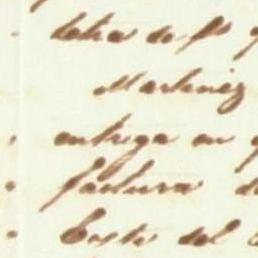 letra de fo
Martinez
entrega en
factura de
Costo del